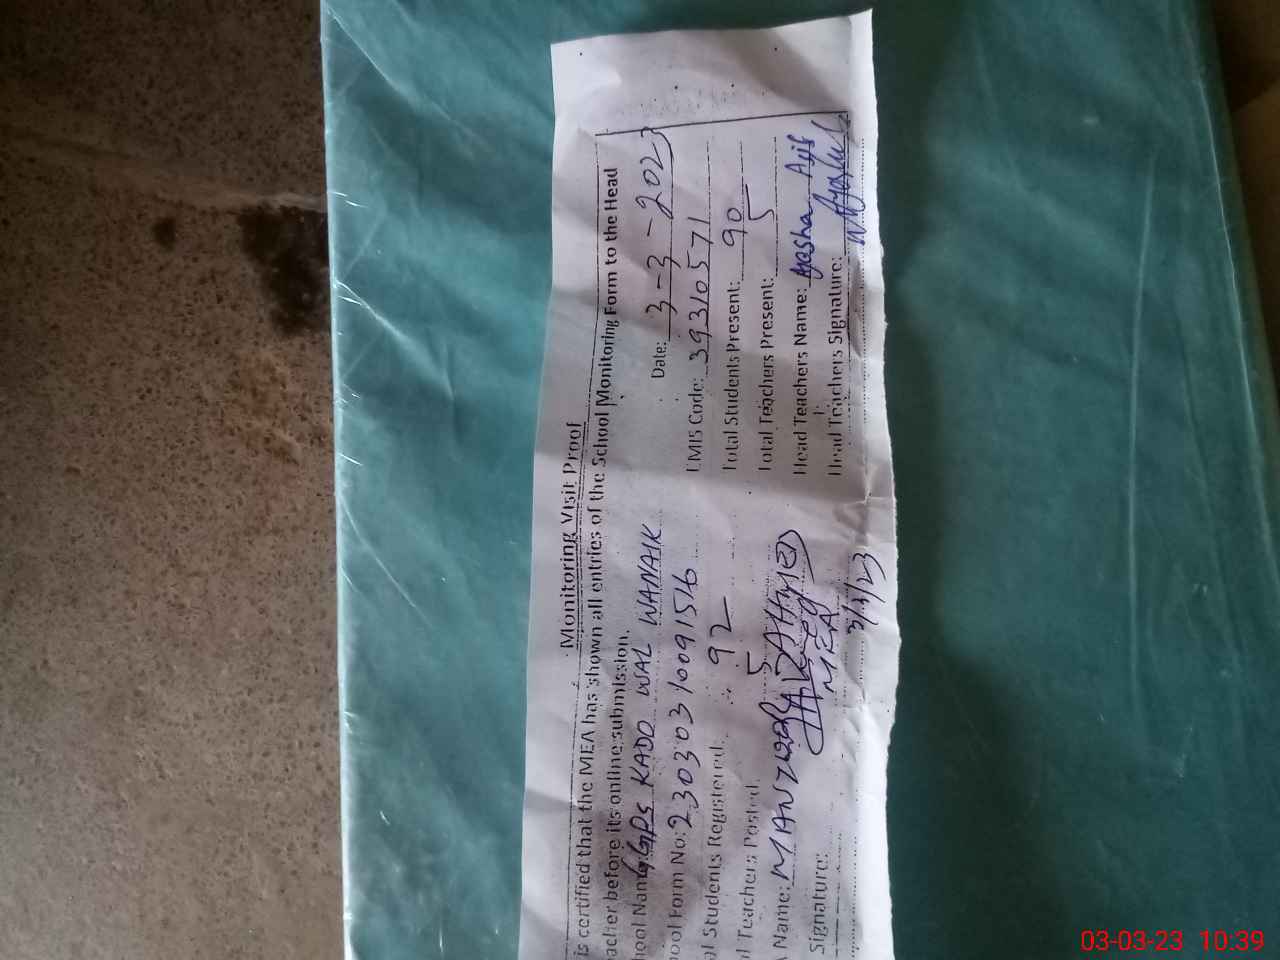 Monitoring Visit Proof
is certified that the MEA has shown all entries of the School Monitoring Form to the Head
acher before its online submission.
Date: 3-3-2023
hool Name GGPS KADO WAL WANAIK
EMIS Code: 39310571
ool Form No: 23030310091516
Total Students Present: 90
al Students Registered: 92
Total Teachers Present: 5
l Teachers Posted 5
Head Teachers Name: Ayasha Asif
A Name: MANZOOR AHMED
Head Teachers Signature:
Signature:
MEA
3/3/23
03-03-23 10:39